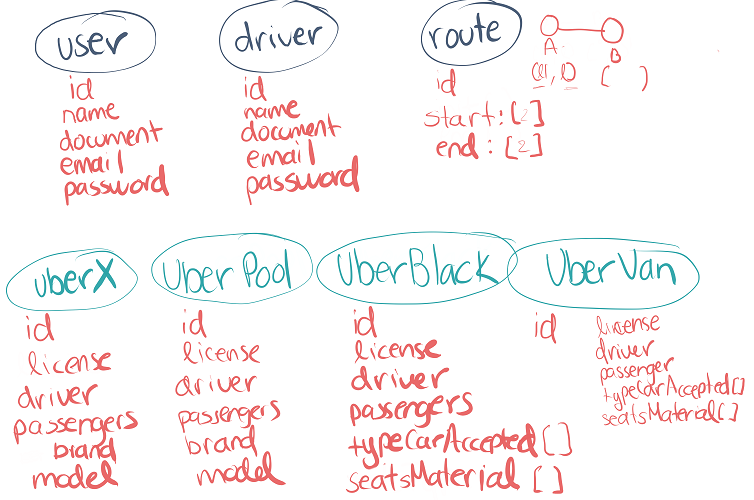 user
id
name
document
email
password
driver
id
name
document
email
password
route
id
start: [2]
end : [2]
A
B
( )
uberX
id
license
driver
passengers
brand
model
Uber Pool
id
license
driver
passengers
brand
model
UberBlack
id
license
driver
passengers
typeCarAccepted []
seatsMaterial []
UberVan
id
license
driver
passenger
typeCarAccepted[]
seatsMaterial[]